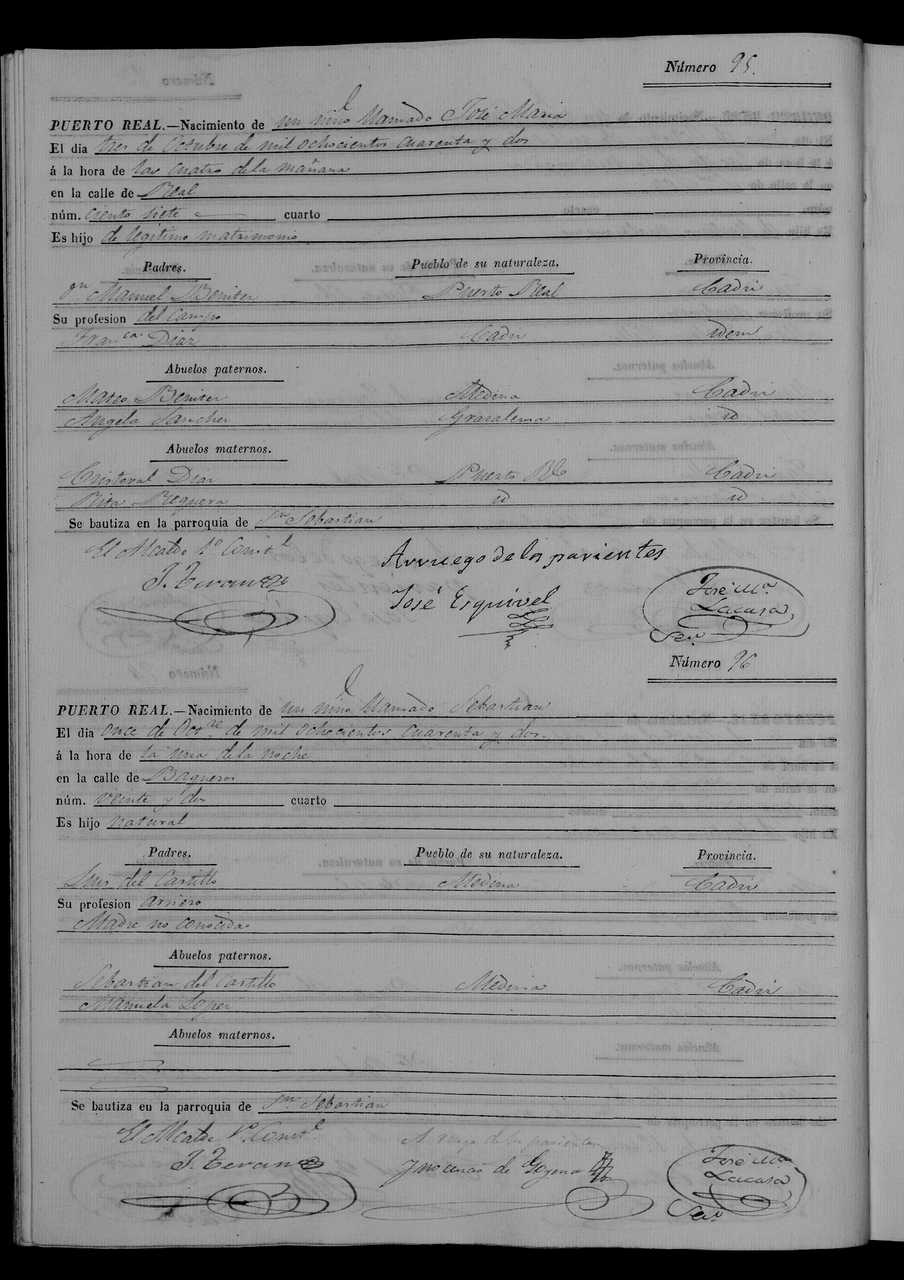 Número 95.
PUERTO REAL.—Nacimiento de un niño llamado José Maria
El dia tres de Octubre de mil ochocientos cuarenta y dos
á la hora de las cuatro de la mañana
en la calle de Real
núm. ciento siete cuarto
Es hijo de legitimo matrimonio
Padres. Pueblo de su naturaleza. Provincia.
Dn Manuel Benitez Puerto Real Cadiz
Su profesion del Campo
Franca Diaz Cadiz idem
Abuelos paternos.
Mateo Benitez Medina Cadiz
Angela Sanchez Grazalema id
Abuelos maternos.
Cristoval Diaz Puerto Rl Cadiz
Rita id id
Se bautiza en la parroquia de Sn Sebastian
El Alcalde 1º Constl
Arruego de los parientes
J. Teran
José Esquivel
José Mª
Lacasa
Seio
Número 96
PUERTO REAL.—Nacimiento de un niño llamado Sebastian
El dia once de Octre de mil ochocientos cuarenta y dos.
á la hora de la una de la noche
en la calle de Baqueros
núm. veinte y dos cuarto
Es hijo natural
Padres. Pueblo de su naturaleza. Provincia.
Luis del Castillo Medina Cadiz
Su profesion arriero
Madre no conocida
Abuelos paternos.
Sebastian del Castillo Medina Cadiz
Manuela Lopez
Abuelos maternos.
Se bautiza en la parroquia de Sn Sebastian
El Alcalde 1º Constl
A ruego de los parientes
J. Teran
de
José Mª
Lacasa
Seio